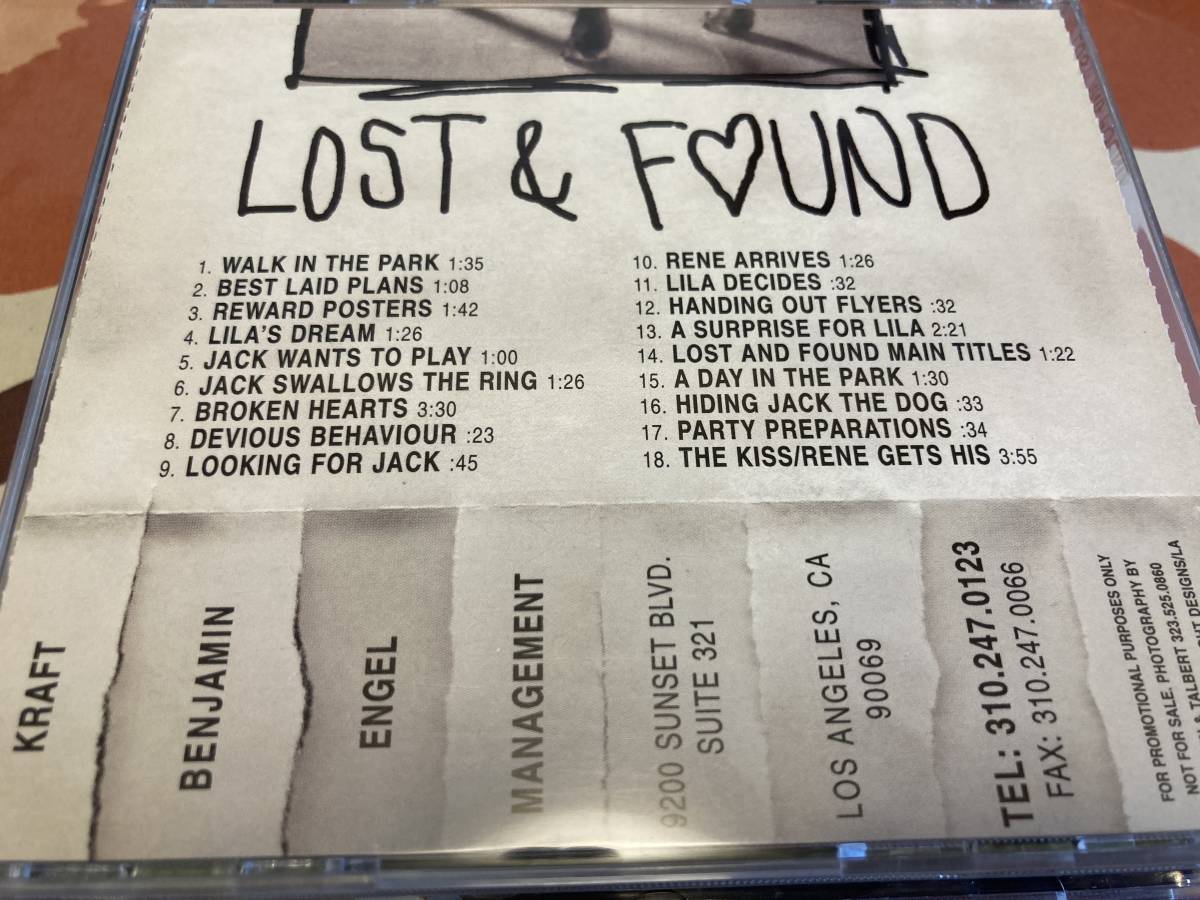 LOST & FOUND
1. WALK IN THE PARK 1:35
2. BEST LAID PLANS 1:08
3. REWARD POSTERS 1:42
4. LILA'S DREAM 1:26
5. JACK WANTS TO PLAY 1:00
6. JACK SWALLOWS THE RING 1:26
7. BROKEN HEARTS 3:30
8. DEVIOUS BEHAVIOUR :23
9. LOOKING FOR JACK :45
10. RENE ARRIVES 1:26
11. LILA DECIDES :32
12. HANDING OUT FLYERS :32
13. A SURPRISE FOR LILA 2:21
14. LOST AND FOUND MAIN TITLES 1:22
15. A DAY IN THE PARK 1:30
16. HIDING JACK THE DOG :33
17. PARTY PREPARATIONS :34
18. THE KISS/RENE GETS HIS 3:55
KRAFT
BENJAMIN
ENGEL
MANAGEMENT
9200 SUNSET BLVD.
SUITE 321
LOS ANGELES, CA
90069
TEL: 310.247.0123
FAX: 310.247.0066
FOR PROMOTIONAL PURPOSES ONLY
NOT FOR SALE. PHOTOGRAPHY BY
TALBERT 323.525.0860
DESIGNS/LA